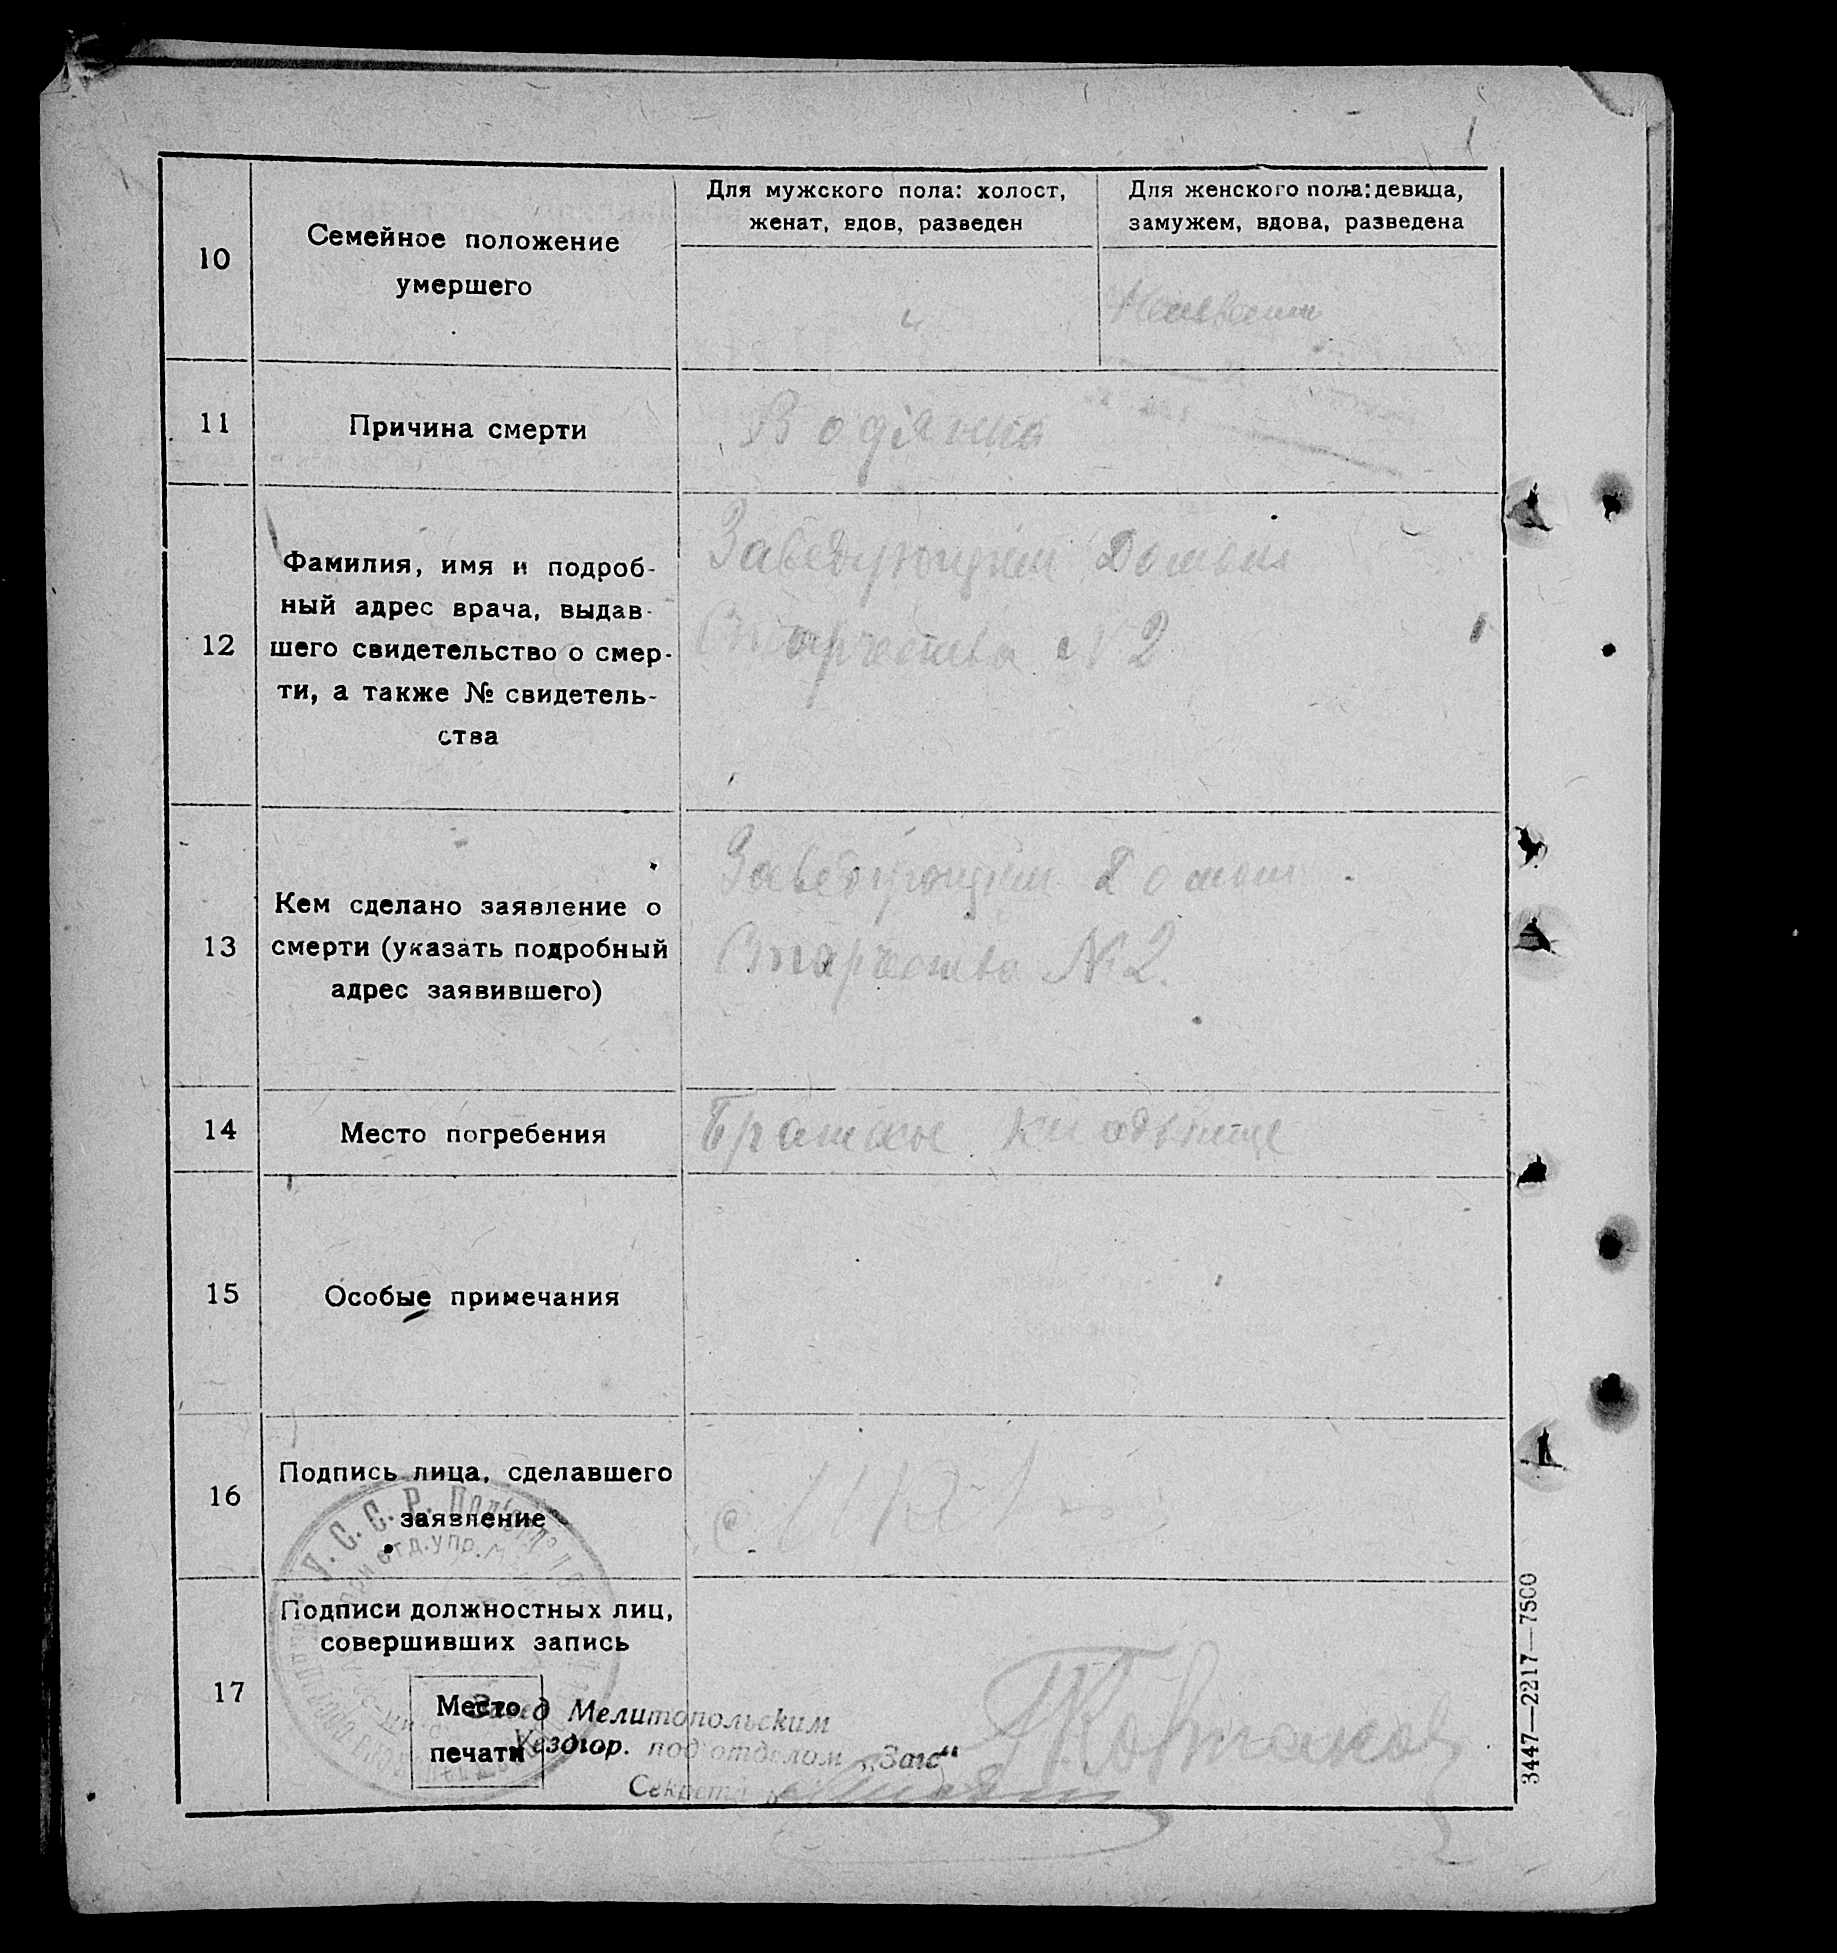 10
Семейное положение
умершего
Для мужского пола: холост,
женат, вдов, разведен
Для женского пола: девица,
замужем, вдова, разведена
11
Причина смерти
Водянка
12
Фамилия, имя и подроб-
ный адрес врача, выдав-
шего свидетельство о смер-
ти, а также № свидетель-
ства
Заведующим Домом
Старчества №2
13
Кем сделано заявление о
смерти (указать подробный
адрес заявившего)
Заведующим Домом
Старчества №2.
14
Место погребения
Братское кладбище
15
Особые примечания
16
Подпись лица, сделавшего
заявление
У. С. С. Р.
17
Подписи должностных лиц,
совершивших запись
Место
печати
Завед Мелитопольским
Уездгор. подотделом „Загс“
3447—2217—7500